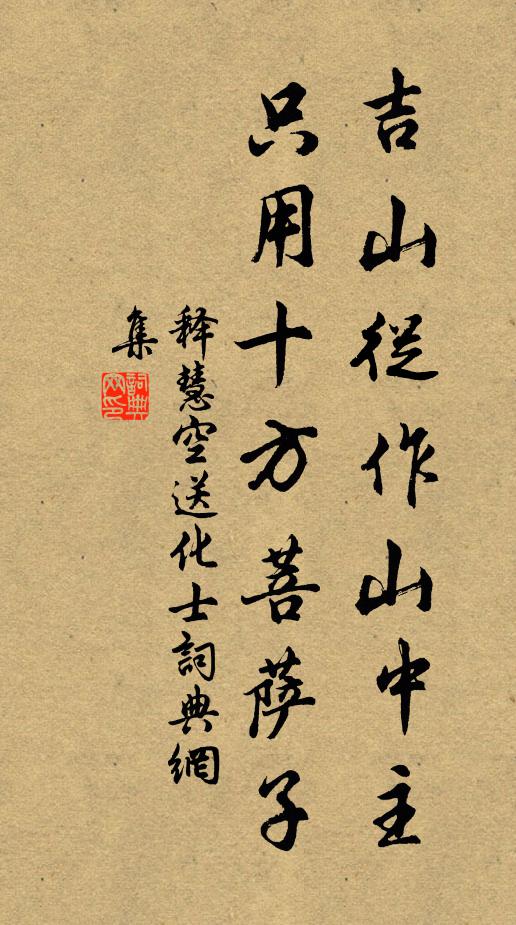 吉山從作山中主
只用十方菩薩子
釋慧空送化士詞典網
集
詞典網印